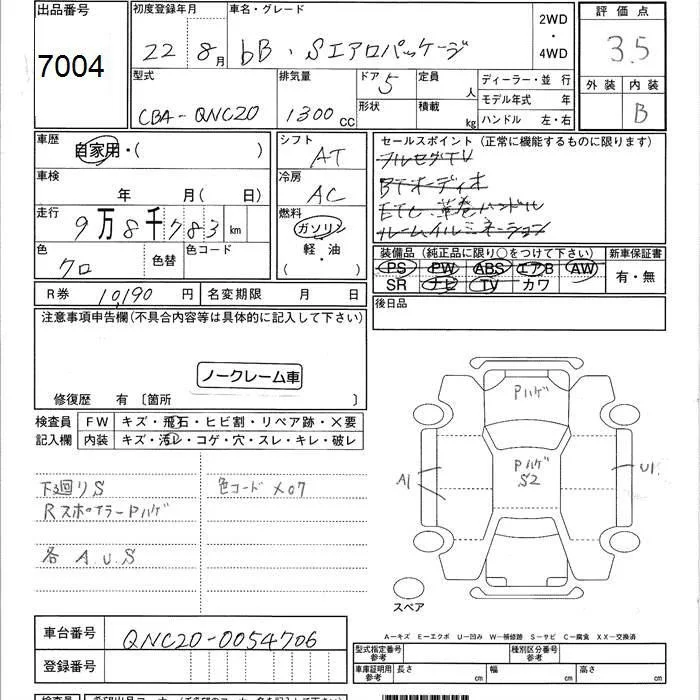 出品番号 初度登録年月 車名・グレード 評価点
7004 22 8月 bB・Sエアロパッケージ 2WD・4WD 3.5
型式 排気量 ドア 5 定員 人 ディーラー・並 行 外装 内装
CBA-QNC20 1300cc 形状 積載 kg モデル年式 年 B
ハンドル 左・右
車歴 自家用・( ) シフト AT セールスポイント(正常に機能するものに限ります)
フルセグTV
車検 年 月( 日) 冷房 AC BTオーディオ
ETC、革巻ハンドル
走行 9万8千783km 燃料 ガソリン ルームイルミネーション
軽・油
( ・ )
色 クロ 色替 色コード 装備品(純正品に限り○をつけて下さい) 新車保証書
PS PW ABS エアB AW 有・無
SR ナビ TV カワ
R券 10,190円 名変期限 月 日 後日品
注意事項申告欄(不具合内容等は具体的に記入して下さい)
ノークレーム車
修復歴 有〔箇所 〕
検査員 FW キズ・飛石・ヒビ割・リペア跡・×要
記入欄 内装 キズ・汚レ・コゲ・穴・スレ・キレ・破レ
Pハゲ
Pハゲ
S2
A1
U1
下回りS 色コードX07
RスポイラーPハゲ
各A.U.S
スペア
車台番号 QNC20-0054706
A-キズ E-エクボ U-凹み W-補修跡 S-サビ C-腐食 XX-交換済
登録番号
型式指定番号 参考 種別区分番号 参考
車庫証明用 参考 長さ cm 幅 cm 高さ cm